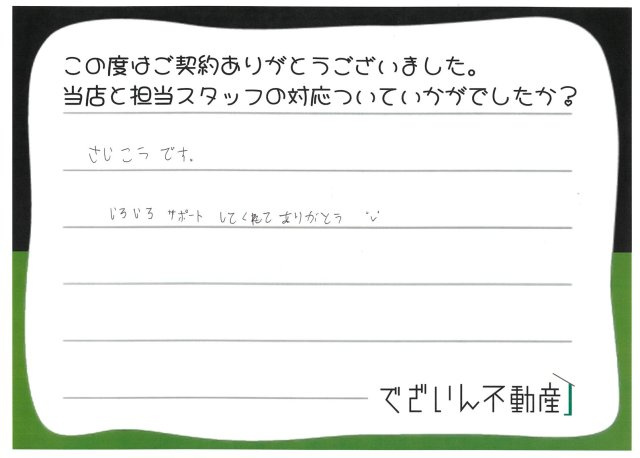 この度はご契約ありがとうございました。
当店と担当スタッフの対応ついていかがでしたか?
さいこうです。
いろいろ サポート してくれて ありがとう
でざいん不動産